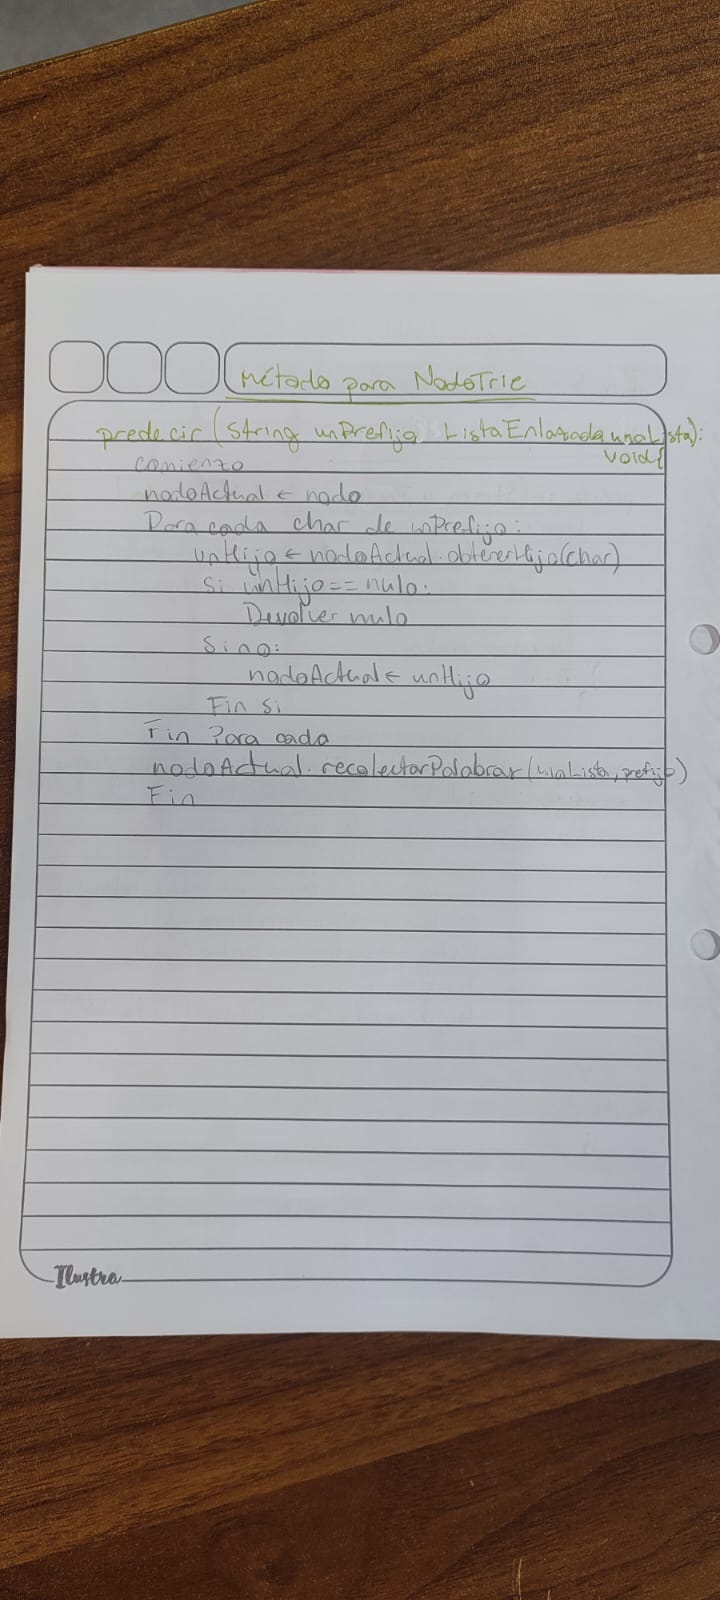 Método para NodoTrie
predecir (String unPrefijo, ListaEnlazada unaLista):
void{
comienzo
nodoActual ← nodo
Para cada char de unPrefijo:
unHijo ← nodoActual.obtenerHijo(char)
Si unHijo == nulo:
Devolver nulo
Sino:
nodoActual ← unHijo
Fin Si
Fin Para cada
nodoActual.recolectarPalabrar(unaLista, prefijo)
Fin
Ilustra